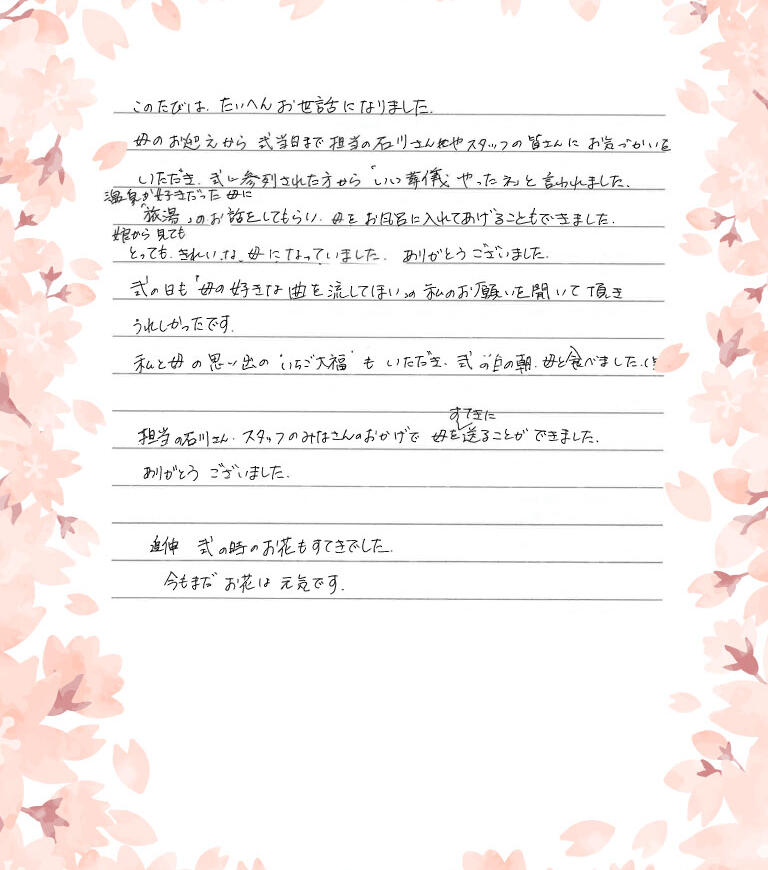 このたびは、たいへんお世話になりました。
母のお迎えから 式当日まで 担当の石川さんやスタッフの皆さんに お気づかいを
いただき、式に参列された方から「いい葬儀やったネ」と言われました。
温泉が好きだった母に
「旅湯」のお話をしてもらい、母をお風呂に入れてあげることもできました。
娘から見ても
とっても、きれいな、母になっていました。 ありがとうございました。
式の日も「母の好きな曲を流してほしい」の 私のお願いを聞いて頂き
うれしかったです。
私と母の思い出の"いちご大福"も いただき、式の日の朝、母と食べました。
すてきに
担当の石川さん、スタッフのみなさんのおかげで 母を送ることができました。
ありがとうございました。
追伸 式の時のお花もすてきでした。
今もまだ お花は 元気です。